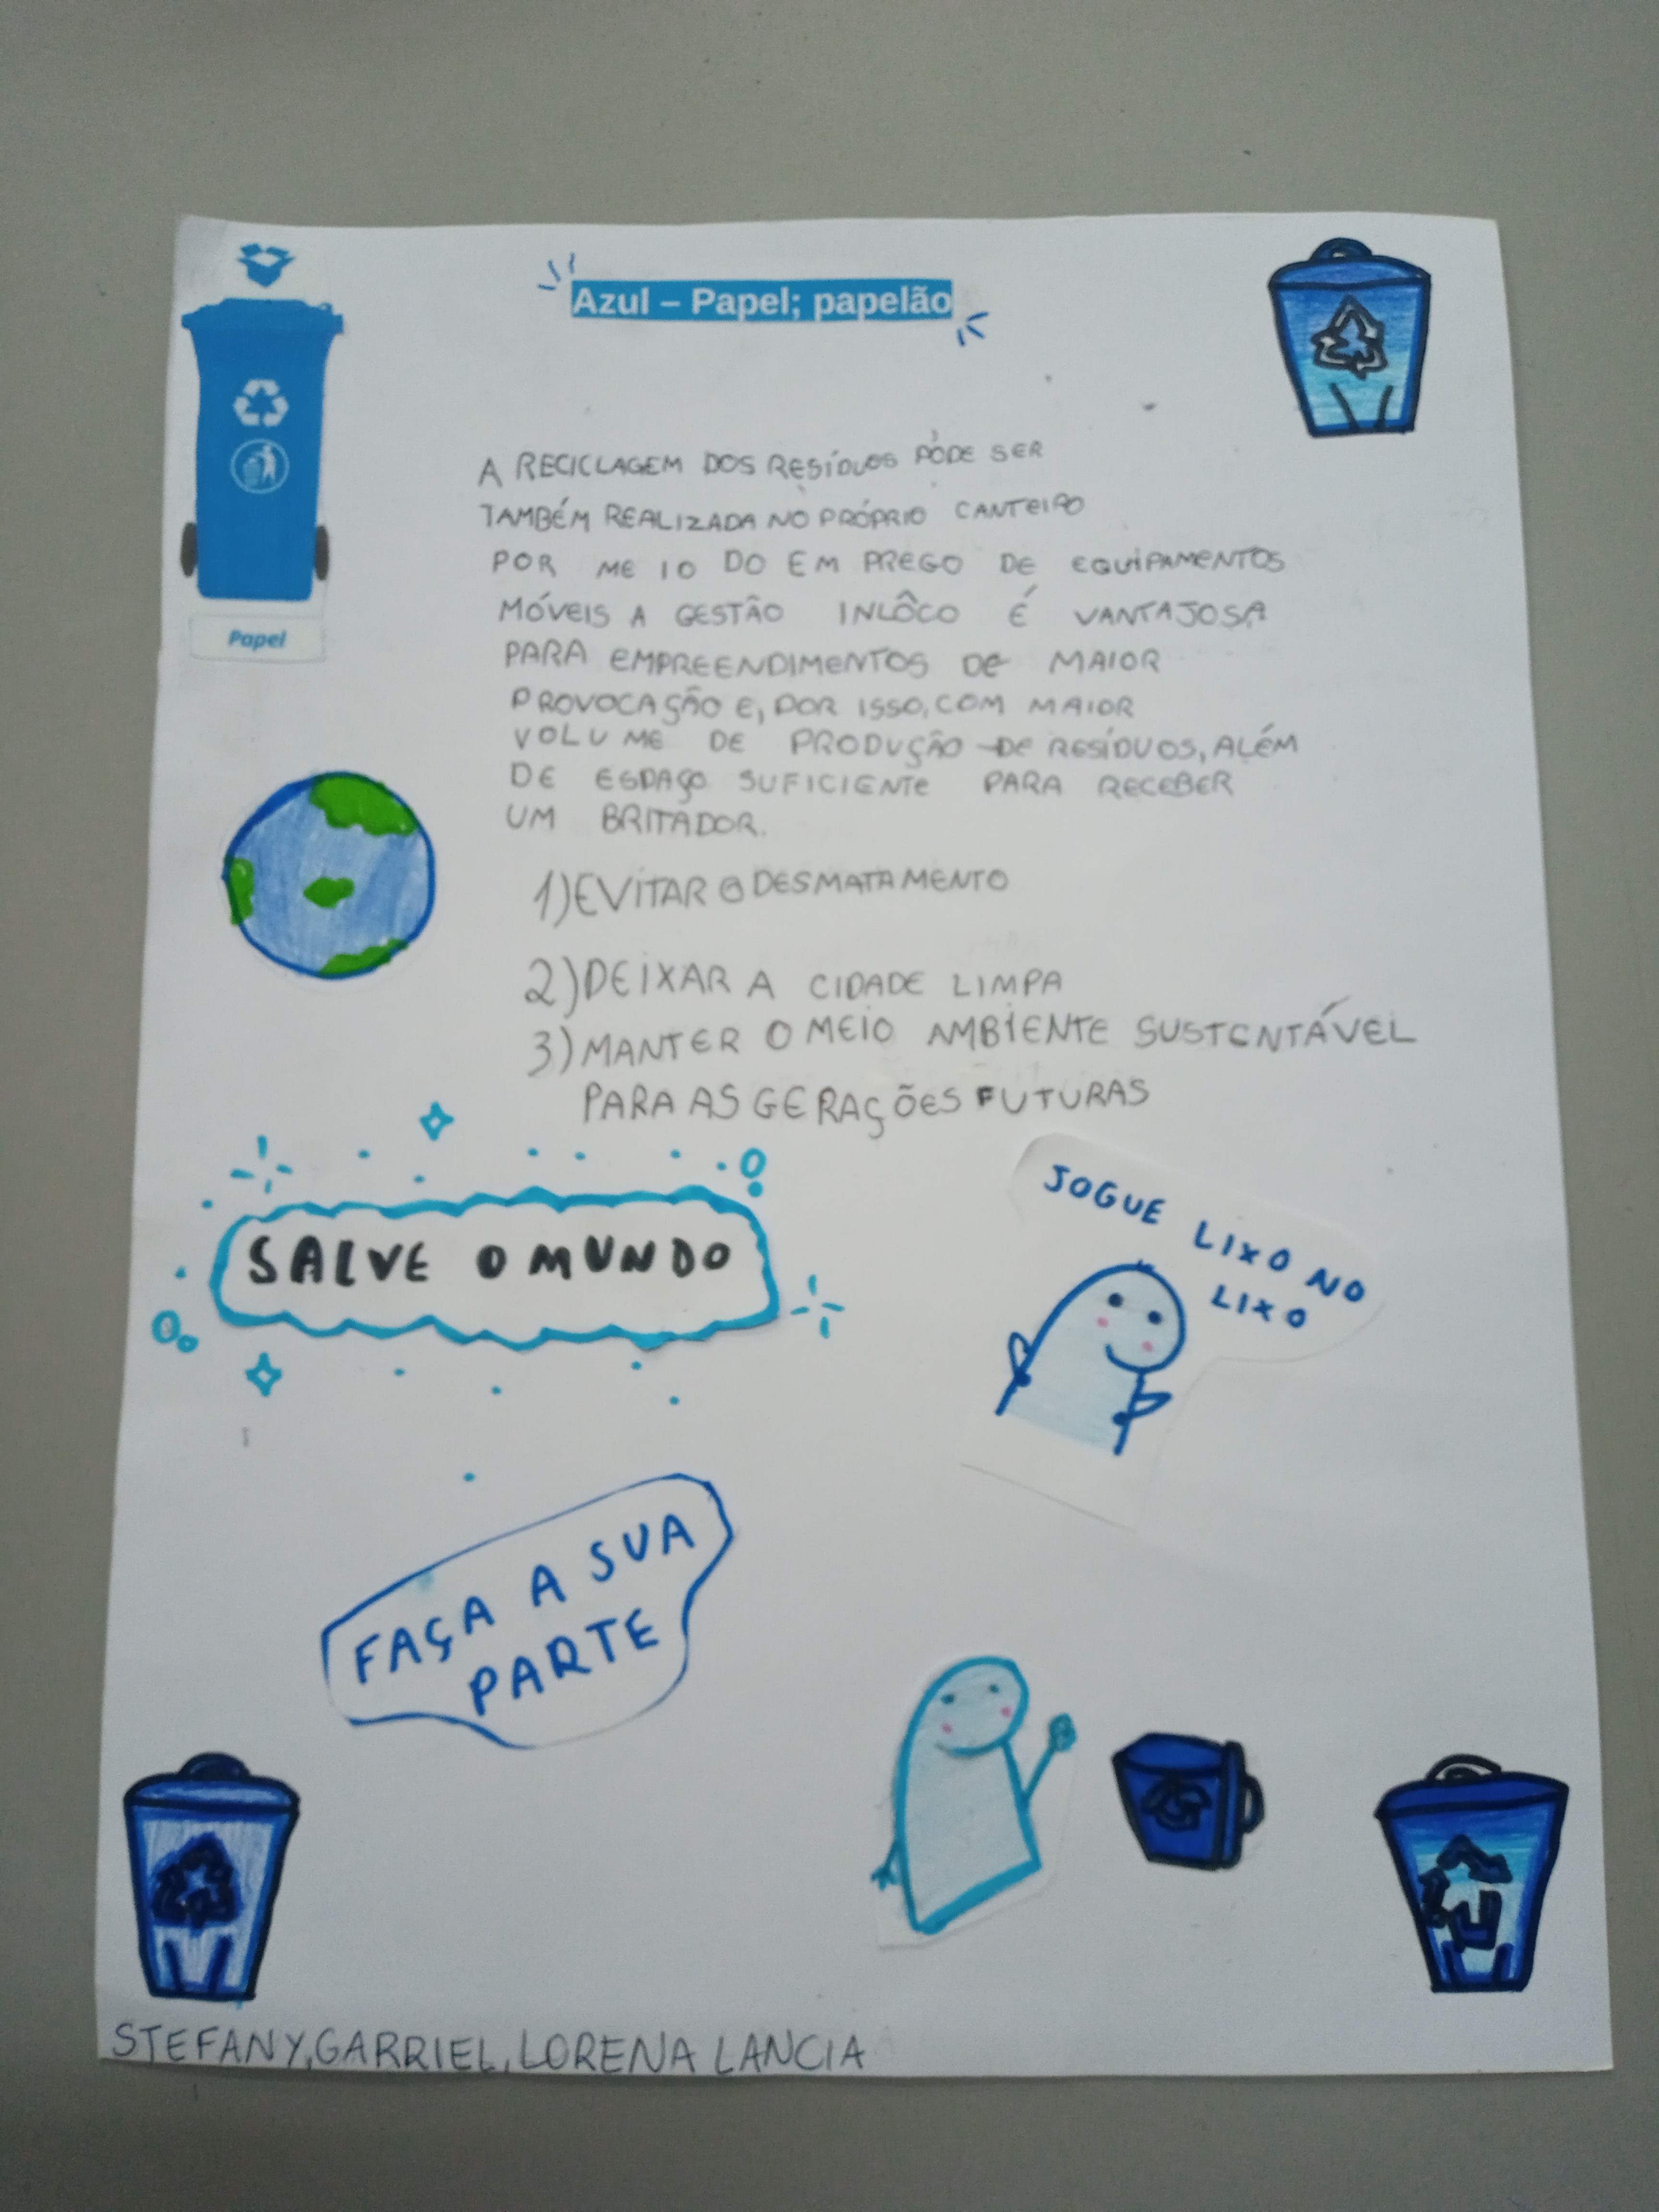 Azul – Papel; papelão
A RECICLAGEM DOS RESÍDUOS PODE SER
TAMBÉM REALIZADA NO PRÓPRIO CANTEIRO
POR ME IO DO EM PREGO DE EQUIPAMENTOS
MÓVEIS A GESTÃO INLÔCO É VANTAJOSA
PARA EMPREENDIMENTOS DE MAIOR
PROVOCAÇÃO E, POR ISSO, COM MAIOR
VOLUME DE PRODUÇÃO DE RESÍDUOS, ALÉM
DE ESPAÇO SUFICIENTE PARA RECEBER
UM BRITADOR.
Papel
1) EVITAR O DESMATAMENTO
2) DEIXAR A CIDADE LIMPA
3) MANTER O MEIO AMBIENTE SUSTENTÁVEL
PARA AS GERAÇÕES FUTURAS
SALVE O MUNDO
JOGUE LIXO NO
LIXO
FAÇA A SUA
PARTE
STEFANY, GARRIEL, LORENA LANCIA